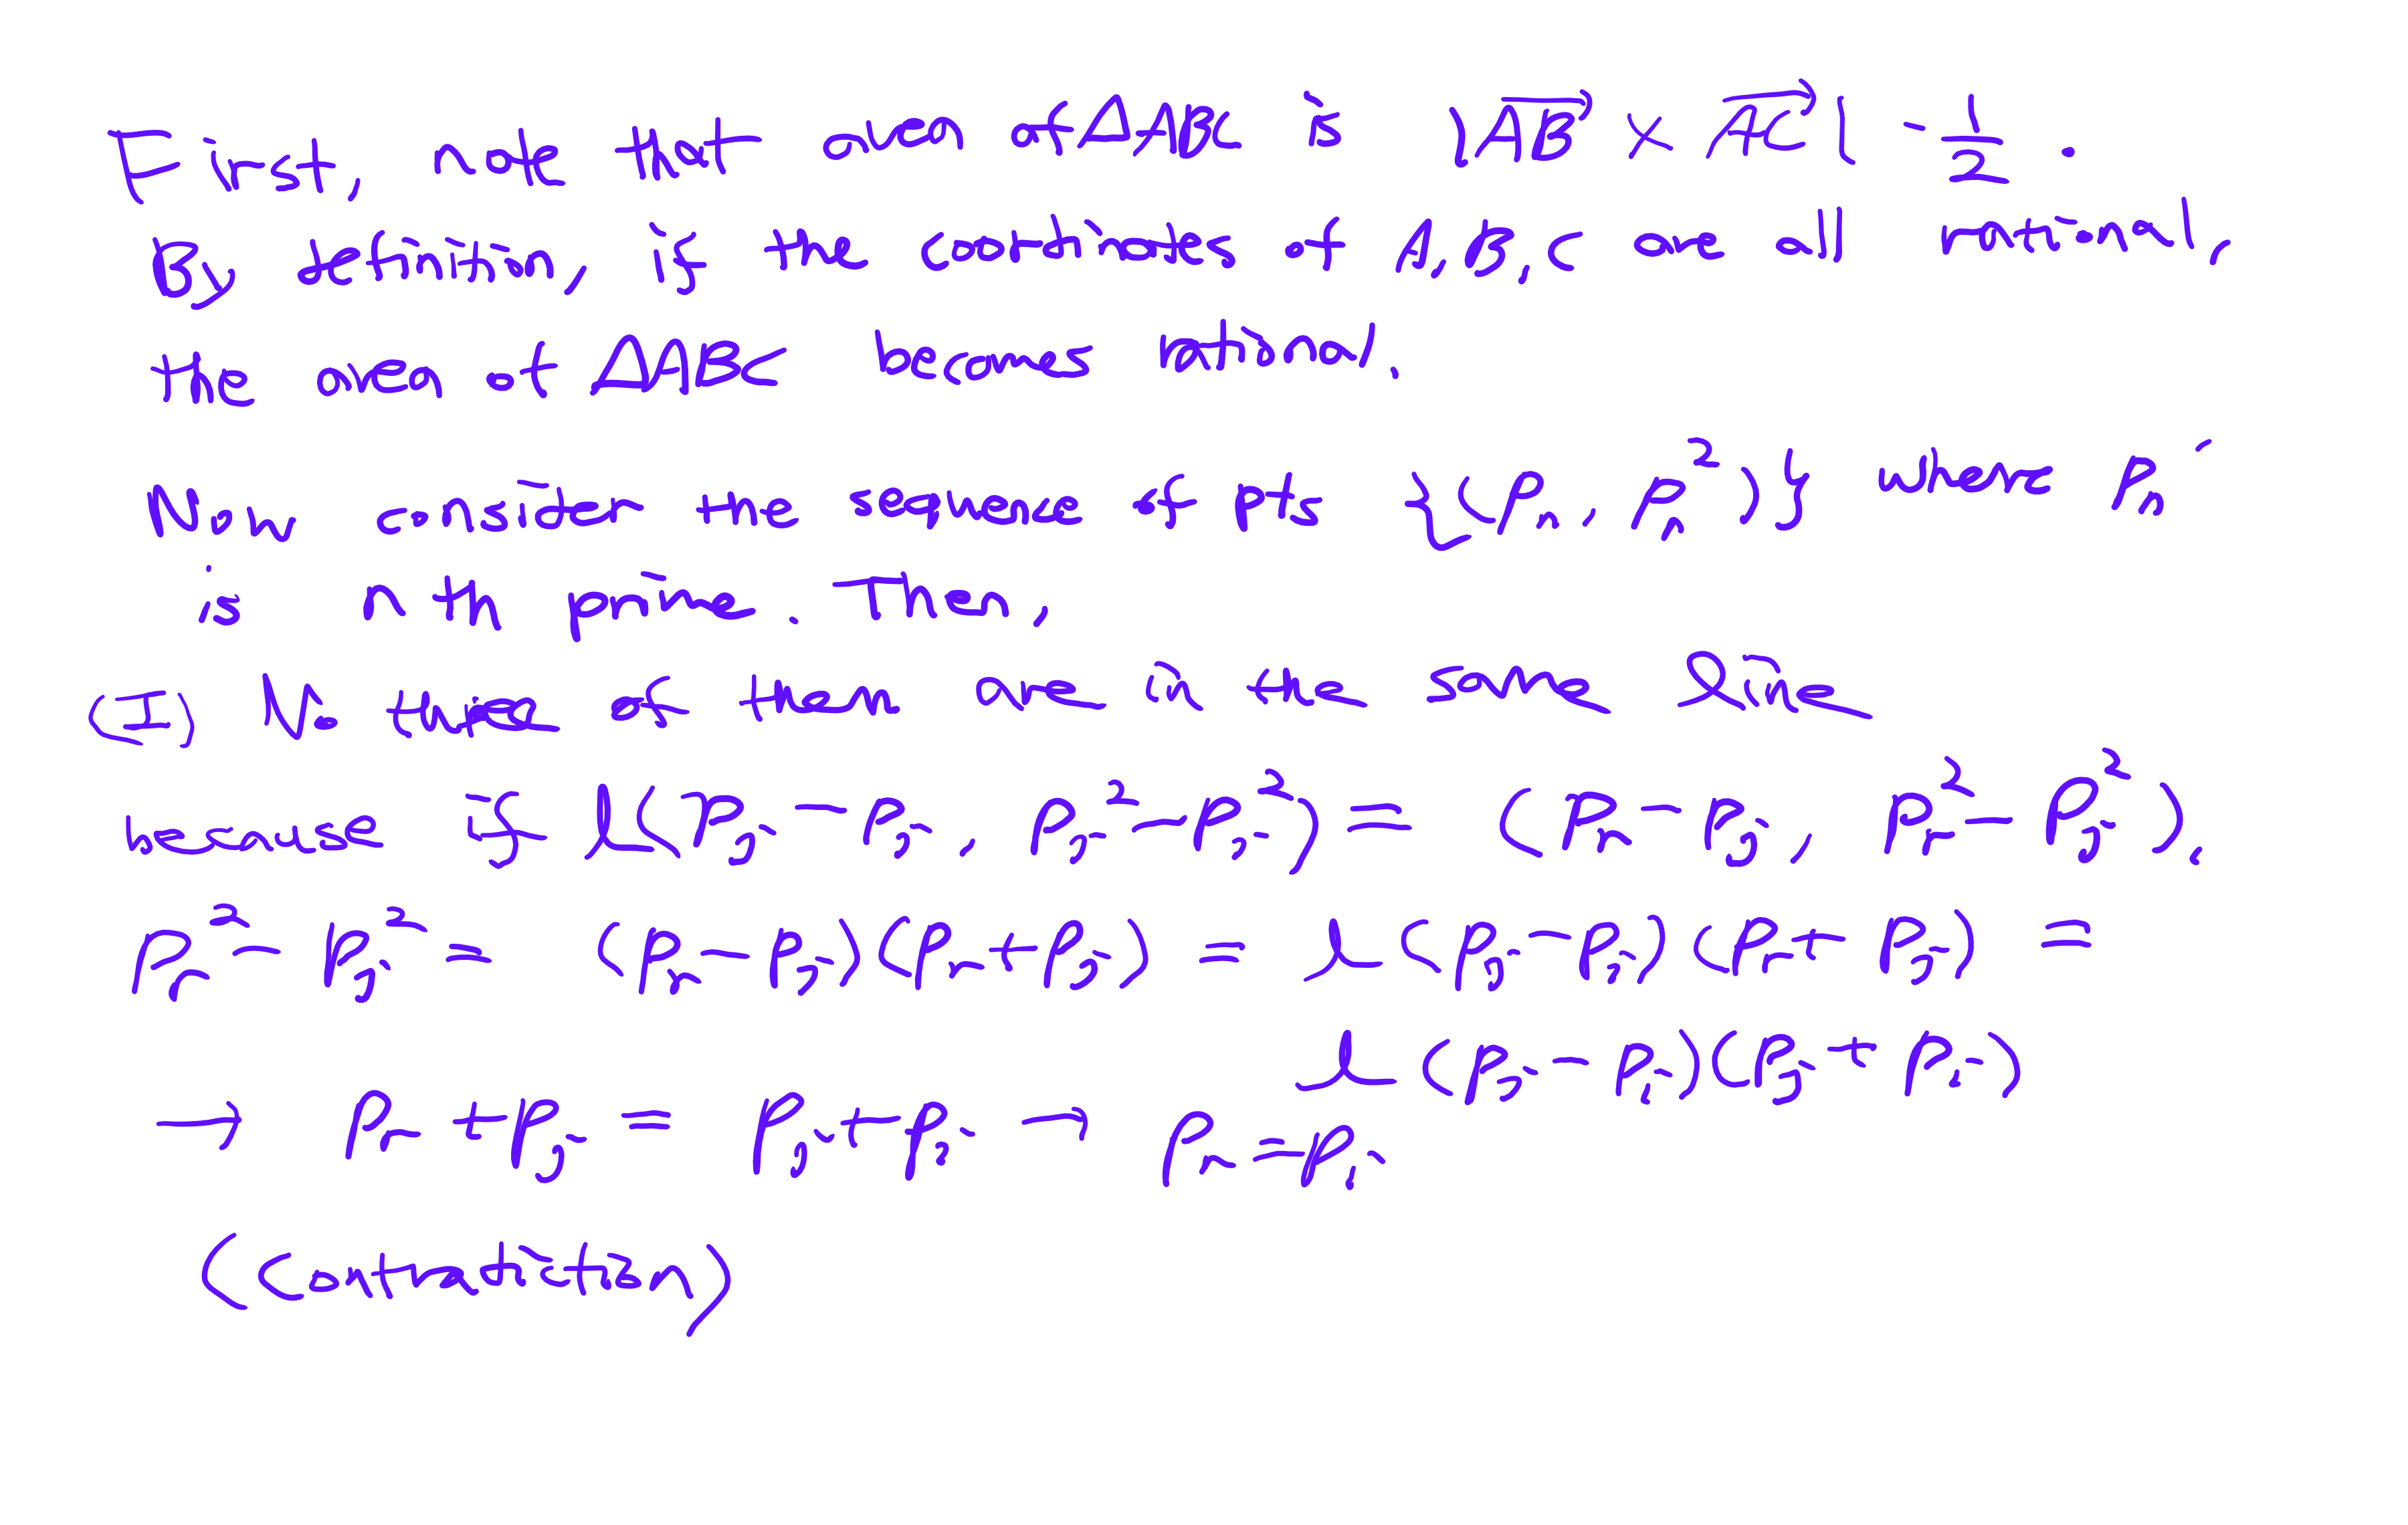 First, note that area of △ABC is |AB × AC| · 1/2 .
By definition, if the coordinates of A, B, C are all rational,
the area of △ABC becomes rational.
Now consider the sequence of pts {(Pn, Pn²)} where Pn
is nth prime. Then,
(I) No three of them are in the same line
because if l(Pj - Pi, Pj² - Pi²) = (Pr - Pj, Pr² - Pj²),
Pr² - Pj² = (Pr - Pj)(Pr + Pj) = l(Pj - Pi)(Pr + Pj) =
l(Pj - Pi)(Pj + Pi)
→ Pr + Pj = Pj + Pi → Pr = Pi
(Contradiction)